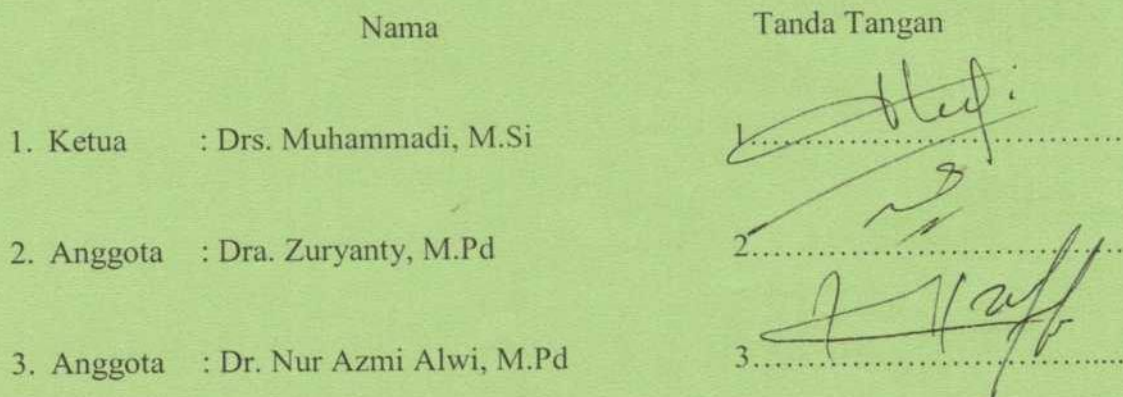 Nama Tanda Tangan
1. Ketua : Drs. Muhammadi, M.Si 1..............................
2. Anggota : Dra. Zuryanty, M.Pd 2..............................
3. Anggota : Dr. Nur Azmi Alwi, M.Pd 3..............................